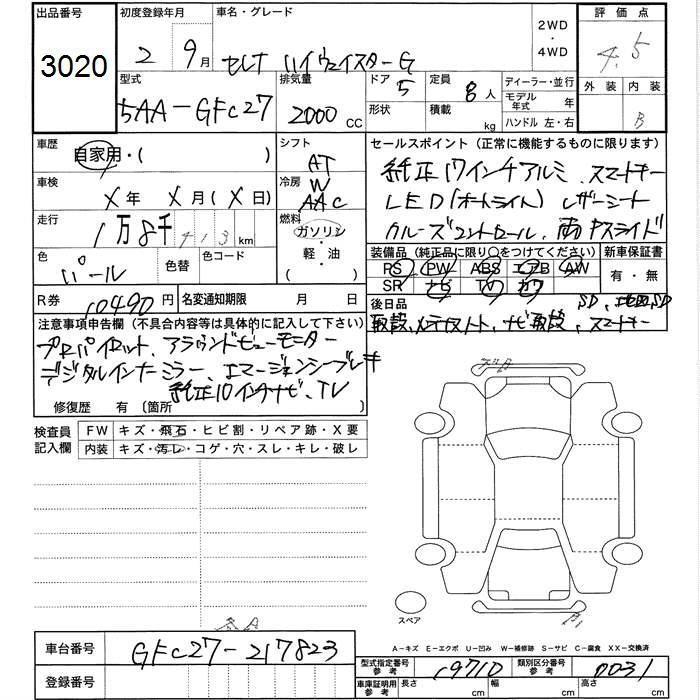 出品番号 初度登録年月 車名・グレード 2WD・4WD 評価点
3020 2 9月 セレナ ハイウェイスターG 4.5
型式 排気量 ドア 定員 ディーラー・並行 外装 内装
5AA-GFC27 2000CC 5 8人 モデル年式 年 B
形状 積載 kg ハンドル 左・右
車歴 シフト セールスポイント(正常に機能するものに限ります)
自家用・( ) AT 純正17インチアルミ、スマートキー
車検 冷房 LED(オートライト) レザーシート
X年 X月(X日) W AAC クルーズコントロール、両Pスライド
走行 燃料 装備品(純正品に限り○をつけてください) 新車保証書
1万8千413km ガソリン・軽・油・( ) RS PW ABS エアB AW 有・無
色 色替 色コード SR ナビ TV カワ
パール
R券 10490円 名変通知期限 月 日 後日品 SD、
注意事項申告欄(不具合内容等は具体的に記入して下さい) 取説、メンテナンスノート、ナビ取説、スマートキー
プロパイロット、アラウンドビューモニター
デジタルインナーミラー、エマージェンシーブレーキ
純正10インチナビ、TV
修復歴 有 〔箇所 〕
検査員記入欄 FW キズ・飛石・ヒビ割・リペア跡・X要
内装 キズ・汚レ・コゲ・穴・スレ・キレ・破レ
スペア
A-キズ E-エクボ U-凹み W-補修跡 S-サビ C-腐食 XX-交換済
車台番号 GFC27-217823
型式指定番号 参考 19710 類別区分番号 参考 0031
登録番号 車庫証明用 参考 長さ cm 幅 cm 高さ cm